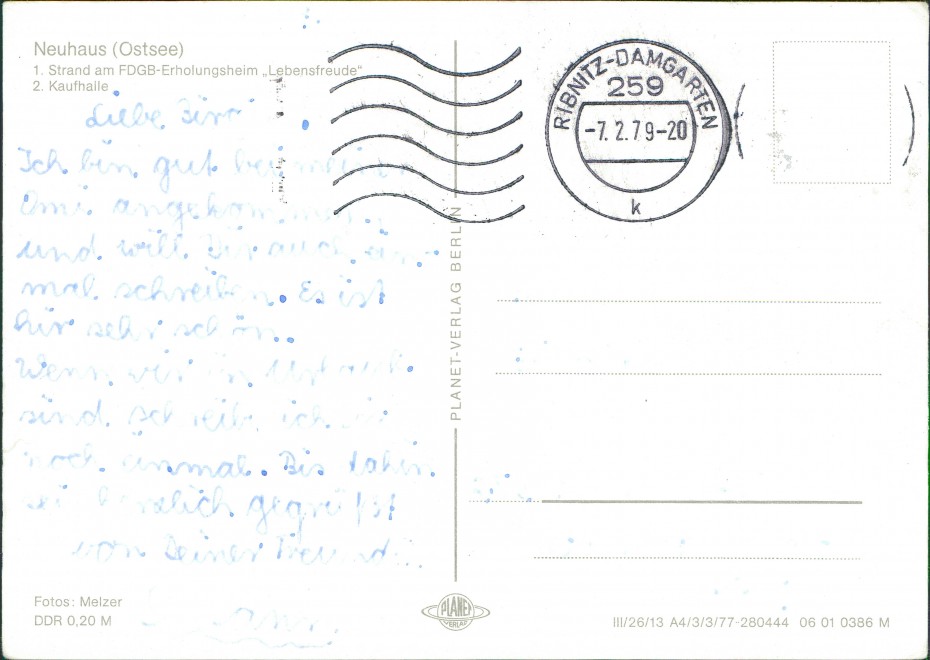 Neuhaus (Ostsee)
1. Strand am FDGB-Erholungsheim „Lebensfreude“
2. Kaufhalle
Liebe
Ich bin gut bei
Omi angekommen
und will Dir auch ein-
mal schreiben. Es ist
hir sehr schön.
Wenn wir in Urlaub
sind schreib ich
noch einmal. Bis dahin
sei herzlich gegrüßt
von Deiner
RIBNITZ-DAMGARTEN
259
-7.2.79-20
k
PLANET-VERLAG BERLIN
Fotos: Melzer
DDR 0,20 M
PLANET
VERLAG
III/26/13 A4/3/3/77-280444 06 01 0386 M